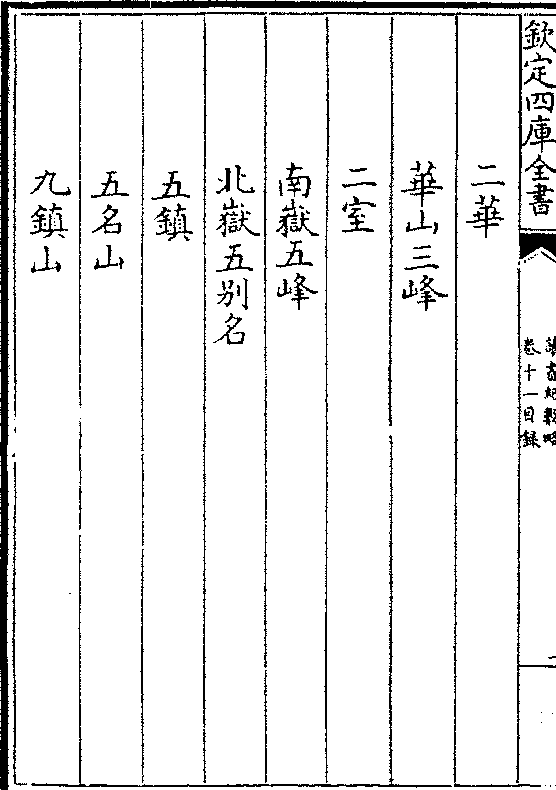 欽定四庫全書
讀書紀數略
卷十一目録
二
二華
華山三峰
二室
南嶽五峰
北嶽五別名
五鎮
五名山
九鎮山